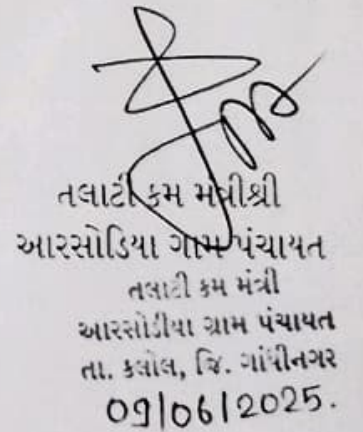 તલાટી કમ મંત્રીશ્રી
આરસોડિયા ગામ પંચાયત
તલાટી કમ મંત્રી
આરસોડીયા ગ્રામ પંચાયત
તા. કલોલ, જિ. ગાંધીનગર
09/06/2025.